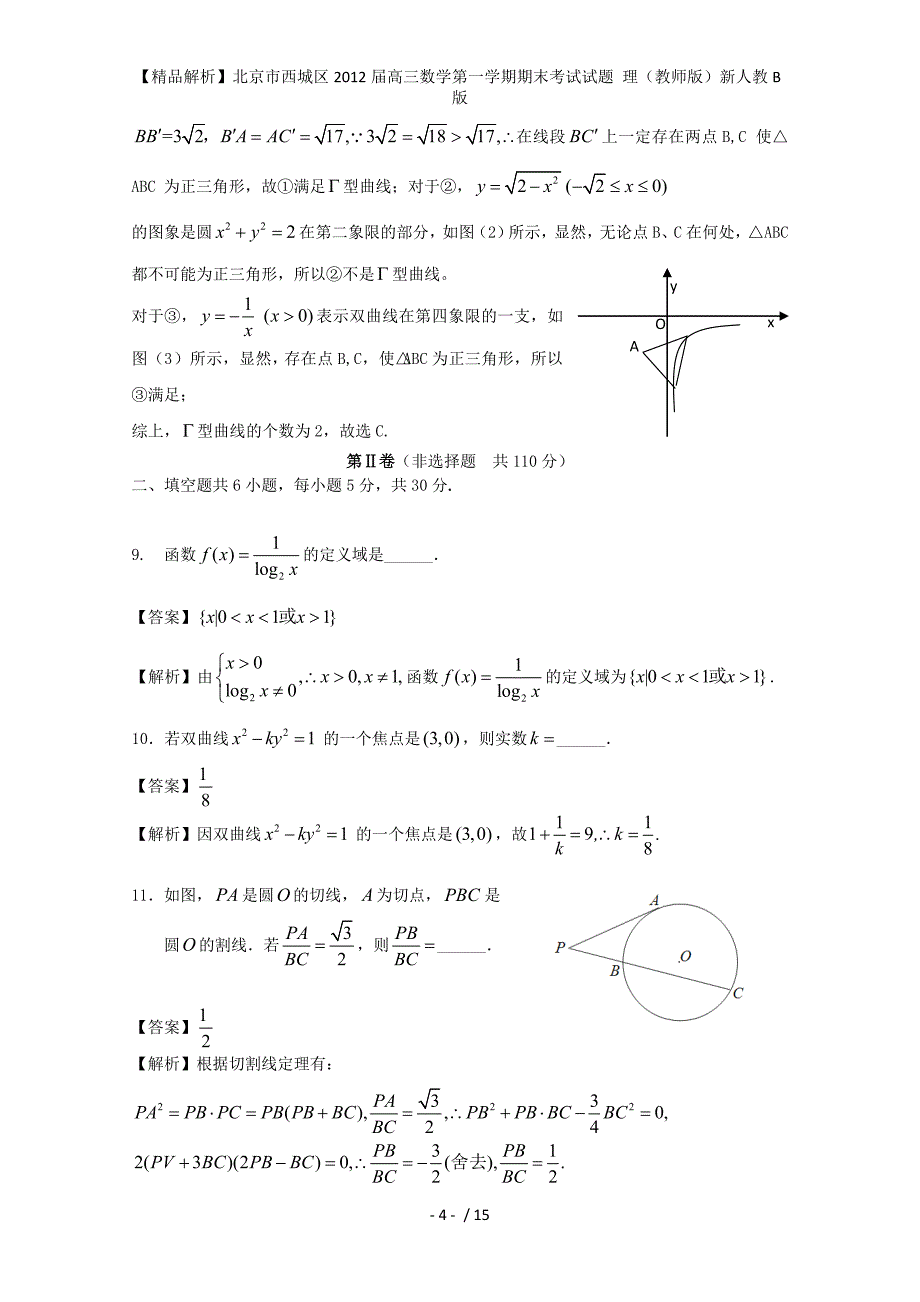 【精品解析】北京市西城区2012届高三数学第一学期期末考试试题 理（教师版）新人教B
版
BB′=3√2，B′A = AC′ = √17,∵3√2 = √18 > √17,∴在线段BC′上一定存在两点B,C 使△
ABC 为正三角形，故①满足Γ型曲线；对于②，y = √(2−x²) (−√2 ≤ x ≤ 0)
的图象是圆x² + y² = 2在第二象限的部分，如图(2)所示，显然，无论点B、C在何处，△ABC
都不可能为正三角形，所以②不是Γ型曲线。
对于③，y = −1/x (x > 0)表示双曲线在第四象限的一支，如
图(3)所示，显然，存在点B,C，使△ABC为正三角形，所以
③满足；
综上，Γ型曲线的个数为2，故选C.
y
O
x
A
第Ⅱ卷（非选择题 共110分）
二、填空题共6小题，每小题5分，共30分．
9． 函数f(x) = 1/log₂x的定义域是______．
【答案】{x|0 < x < 1或x > 1}
【解析】由{x > 0, log₂x ≠ 0,∴x > 0, x ≠ 1,函数f(x) = 1/log₂x的定义域为{x|0 < x < 1或x > 1}．
10．若双曲线x² − ky² = 1 的一个焦点是(3,0)，则实数k = ______．
【答案】1/8
【解析】因双曲线x² − ky² = 1 的一个焦点是(3,0)，故1 + 1/k = 9,∴k = 1/8.
11．如图，PA是圆O的切线，A为切点，PBC是
圆O的割线．若PA/BC = √3/2，则PB/BC = ______．
A
P
B
O
C
【答案】1/2
【解析】根据切割线定理有：
PA² = PB·PC = PB(PB + BC), PA/BC = √3/2,∴PB² + PB·BC − 3/4 BC² = 0,
2(PV + 3BC)(2PB − BC) = 0,∴PB/BC = −3/2(舍去), PB/BC = 1/2.
- 4 - / 15